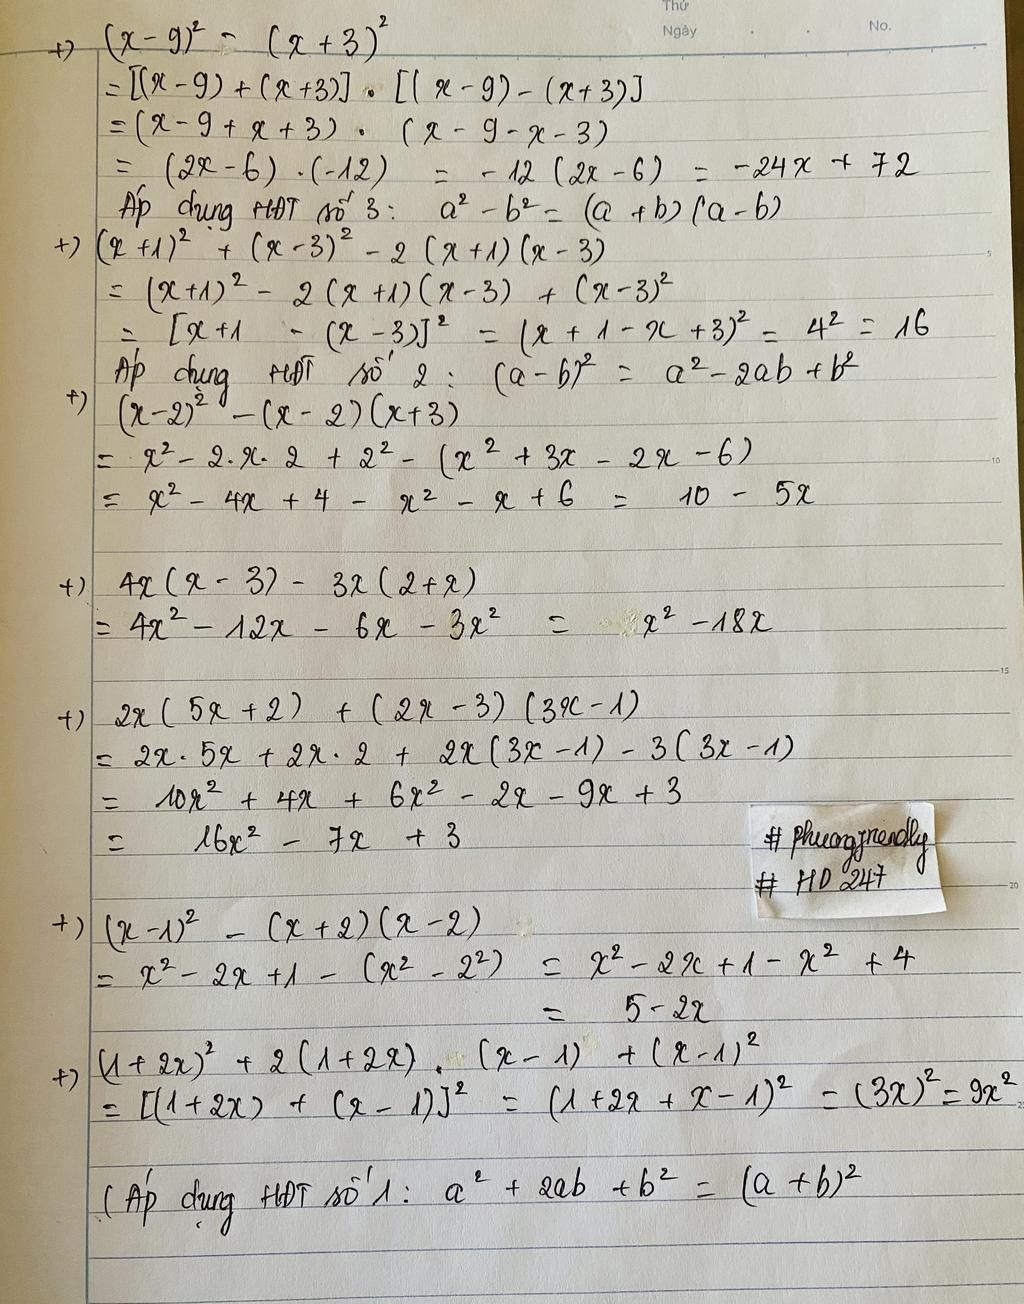 Thứ
Ngày . . No.
+) (x-9)² - (x+3)²
= [(x-9)+(x+3)] . [(x-9)-(x+3)]
= (x-9+x+3) . (x-9-x-3)
= (2x-6) .(-12) = -12(2x-6) = -24x + 72
Áp dụng HĐT số 3: a² - b² = (a+b)(a-b)
+) (x+1)² + (x-3)² - 2(x+1)(x-3)
= (x+1)² - 2(x+1)(x-3) + (x-3)²
= [x+1 - (x-3)]² = (x+1-x+3)² = 4² = 16
Áp dụng HĐT số 2: (a-b)² = a² - 2ab + b²
+) (x-2)² - (x-2)(x+3)
= x² - 2.x.2 + 2² - (x² + 3x - 2x - 6)
= x² - 4x + 4 - x² - x + 6 = 10 - 5x
+) 4x(x-3) - 3x(2+x)
= 4x² - 12x - 6x - 3x² = x² - 18x
+) 2x(5x+2) + (2x-3)(3x-1)
= 2x.5x + 2x.2 + 2x(3x-1) - 3(3x-1)
= 10x² + 4x + 6x² - 2x - 9x + 3
= 16x² - 7x + 3
# phuongfriendly
# HD 247
+) (x-1)² - (x+2)(x-2)
= x² - 2x + 1 - (x² - 2²) = x² - 2x + 1 - x² + 4
= 5 - 2x
+) (1+2x)² + 2(1+2x) . (x-1) + (x-1)²
= [(1+2x) + (x-1)]² = (1+2x+x-1)² = (3x)² = 9x²
(Áp dụng HĐT số 1: a² + 2ab + b² = (a+b)²